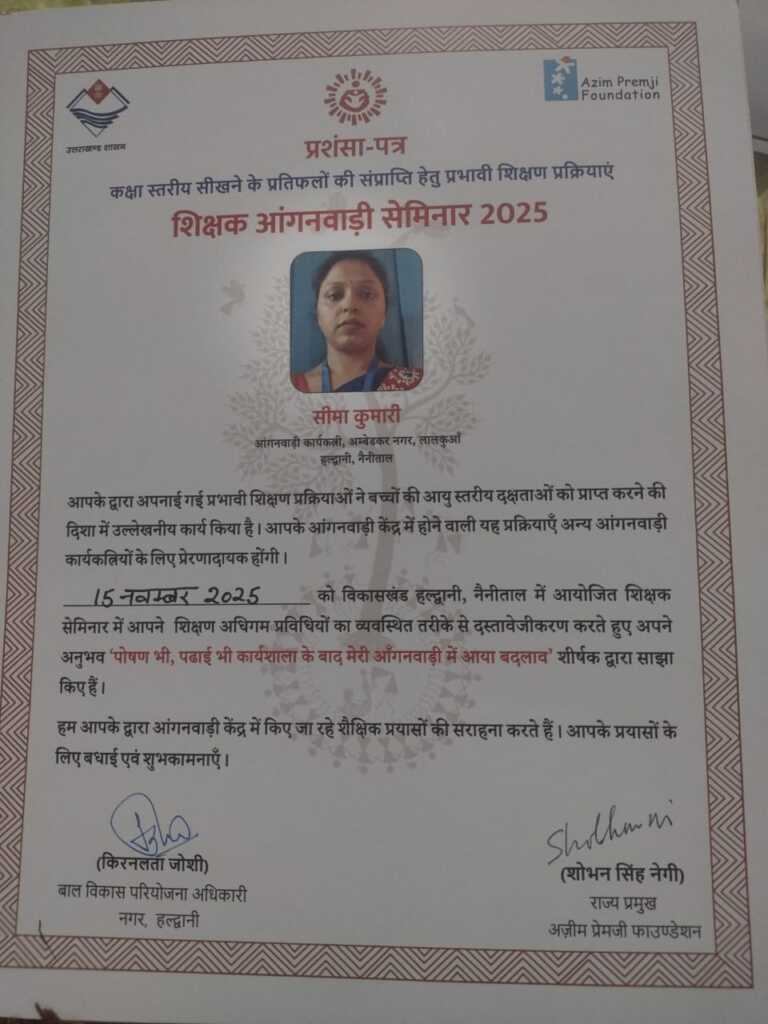 उत्तराखण्ड शासन
Azim Premji
Foundation
प्रशंसा-पत्र
कक्षा स्तरीय सीखने के प्रतिफलों की संप्राप्ति हेतु प्रभावी शिक्षण प्रक्रियाएं
शिक्षक आंगनवाड़ी सेमिनार 2025
सीमा कुमारी
आंगनवाड़ी कार्यकत्री, अम्बेडकर नगर, लालकुआँ
हल्द्वानी, नैनीताल
आपके द्वारा अपनाई गई प्रभावी शिक्षण प्रक्रियाओं ने बच्चों की आयु स्तरीय दक्षताओं को प्राप्त करने की
दिशा में उल्लेखनीय कार्य किया है। आपके आंगनवाड़ी केंद्र में होने वाली यह प्रक्रियाएँ अन्य आंगनवाड़ी
कार्यकत्रियों के लिए प्रेरणादायक होंगी।
15 नवम्बर 2025 को विकासखंड हल्द्वानी, नैनीताल में आयोजित शिक्षक
सेमिनार में आपने शिक्षण अधिगम प्रविधियों का व्यवस्थित तरीके से दस्तावेजीकरण करते हुए अपने
अनुभव ‘पोषण भी, पढाई भी कार्यशाला के बाद मेरी आँगनवाड़ी में आया बदलाव’ शीर्षक द्वारा साझा
किए हैं।
हम आपके द्वारा आंगनवाड़ी केंद्र में किए जा रहे शैक्षिक प्रयासों की सराहना करते हैं। आपके प्रयासों के
लिए बधाई एवं शुभकामनाएँ।
(किरनलता जोशी)
बाल विकास परियोजना अधिकारी
नगर, हल्द्वानी
(शोभन सिंह नेगी)
राज्य प्रमुख
अज़ीम प्रेमजी फाउण्डेशन